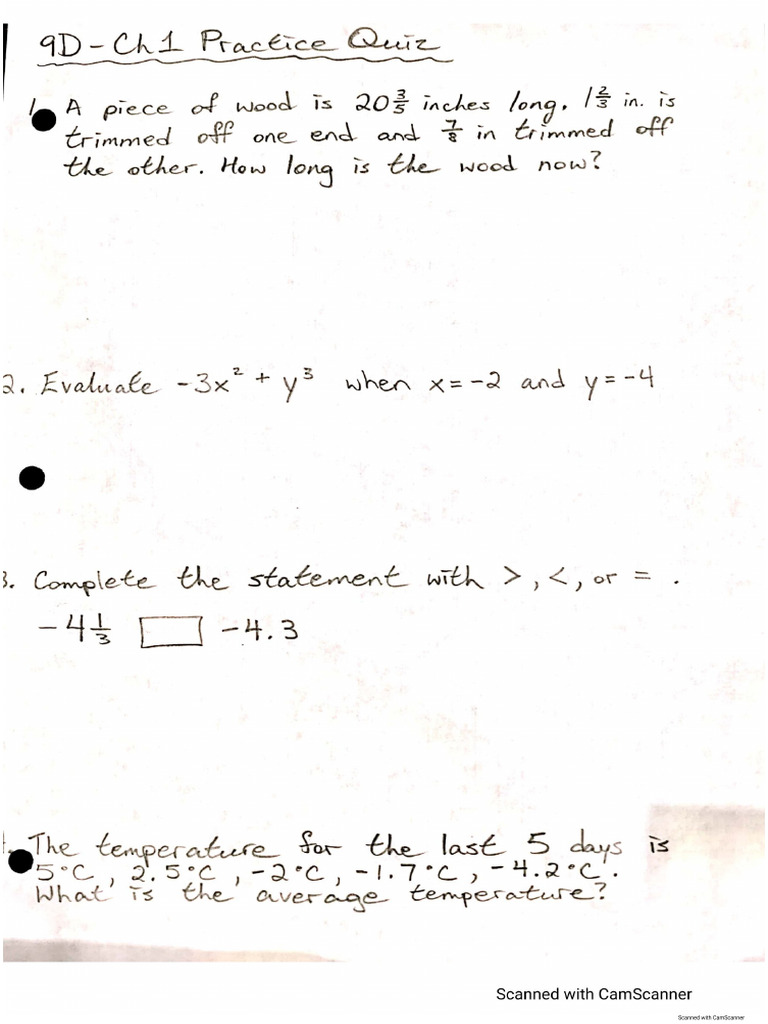 9D - Ch 1 Practice Quiz
1. A piece of wood is 20 3/5 inches long. 1 2/3 in. is
trimmed off one end and 7/8 in trimmed off
the other. How long is the wood now?
2. Evaluate -3x² + y³ when x = -2 and y = -4
3. Complete the statement with >, <, or = .
-4 1/3 -4.3
The temperature for the last 5 days is
5°C, 2.5°C, -2°C, -1.7°C, -4.2°C.
What is the average temperature?
Scanned with CamScanner
Scanned with CamScanner